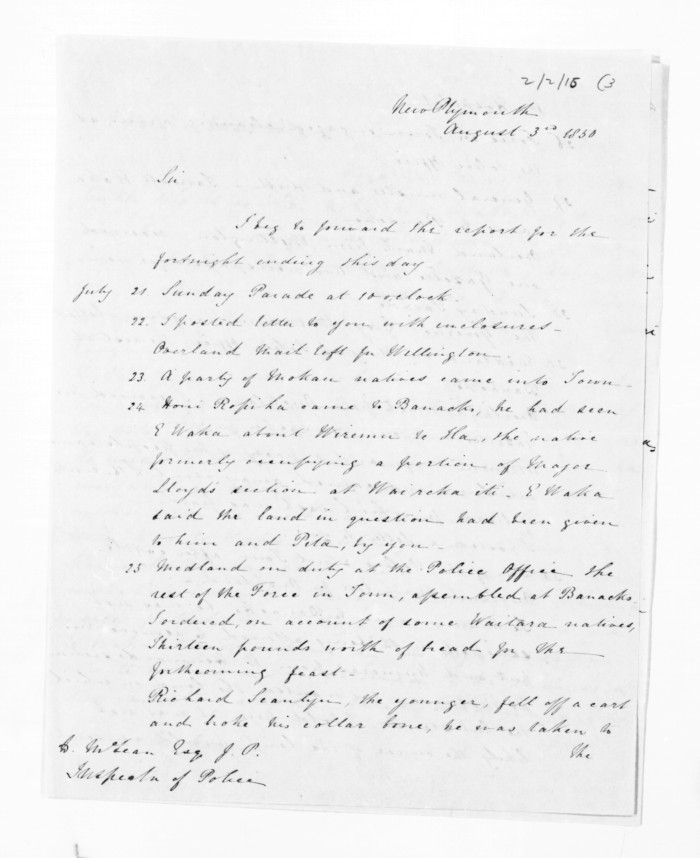 2/2/15 (3
New Plymouth
August 3rd 1850
Sir
I beg to forward the report for the
fortnight ending this day
July 21 Sunday Parade at 10 oclock.
22. I posted letter to you with enclosures -
Overland Mail left for Wellington
23. A party of Mokau natives came into Town -
24. Honi Ropiha came to Barracks, he had seen
E Waka about Wiremu te Ila, the native
formerly occupying a portion of Major
Lloyds section at Waireka iti - E Waka
said the land in question had been given
to him and Pita, by you -
25 Medland on duty at the Police Office the
rest of the Force in Town, assembled at Barracks -
I ordered, on account of some Waitara natives,
Thirteen pounds worth of bread for the
forthcoming feast -
Richard, the younger, fell off a cart
and broke his collar bone, he was taken to
the
McLean Esq. J. P.
Inspector of Police